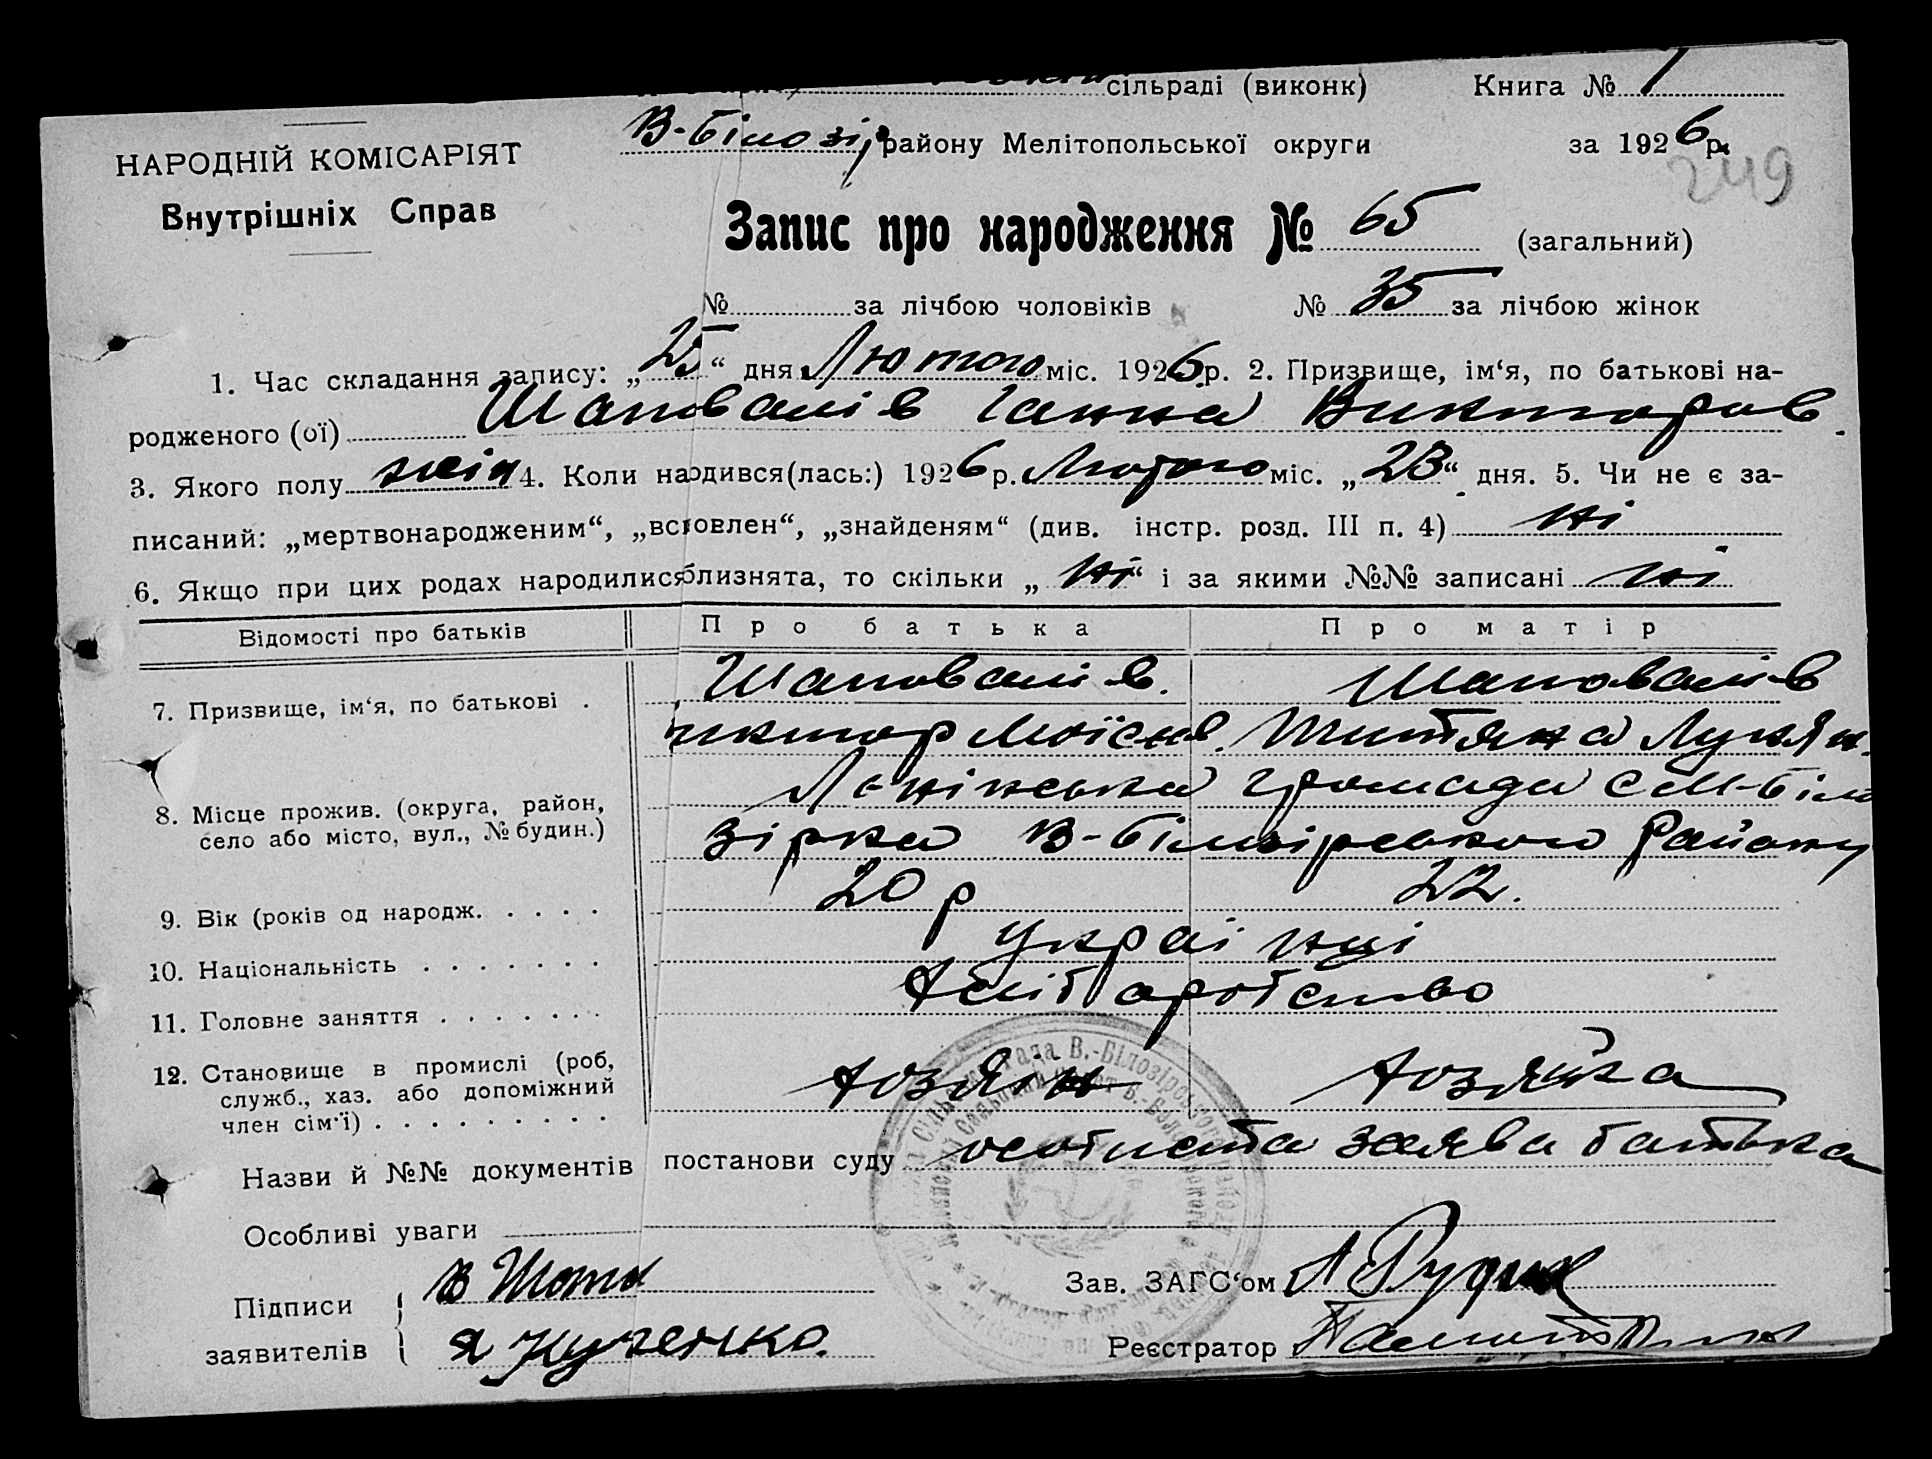 сільраді (виконк) Книга № 1
В-Білозір району Мелітопольської округи за 1926 р.
249
НАРОДНІЙ КОМІСАРІЯТ
Внутрішніх Справ
Запис про народження № 65 (загальний)
№ за лічбою чоловіків № 35 за лічбою жінок
1. Час складання запису: „25“ дня Лютого міс. 1926 р. 2. Призвище, ім‘я, по батькові на-
родженого (ої) Шаповалів Ганна Викторов
3. Якого полу жін 4. Коли народився(лась:) 1926 р. Лютого міс. „23“ дня. 5. Чи не є за-
писаний: „мертвонародженим“, „всиновлен“, „знайденям“ (див. інстр. розд. III п. 4) ні
6. Якщо при цих родах народилися близнята, то скільки „ні“ і за якими №№ записані ні
Відомості про батьків Про батька Про матір
7. Призвище, ім‘я, по батькові . Шаповалів. Шаповалів
иктор Мойсеїв. Титяна Лукян.
8. Місце прожив. (округа, район, село або місто, вул., № будин.) Ленінська громада с М-Біло
зірка В-Білозірського Району
9. Вік (років од народж. . . . . 20 р 22.
10. Національність . . . . . . . українці
11. Головне заняття . . . . . . . хліборобство
12. Становище в промислі (роб, служб., хаз. або допоміжний член сім‘ї) . . . . . . . . . хозяїн хозяйка
Назви й №№ документів постанови суду особиста заява батька
Особливі уваги
Підписи В Шапо Зав. ЗАГС‘ом Л Рудик
заявителів Я Кученко. Реєстратор